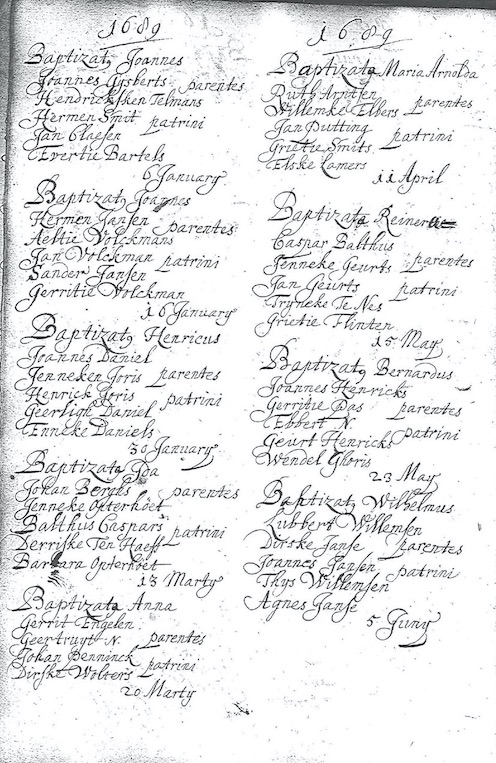 1689
Baptizatq Joannes
Joannes Gysberts parentes
Hendrickjken Telmans
Hermen Smit patrini
Jan Claesen
Evertie Bartels
6 January
Baptizatq Joannes
Hermen Jansen parentes
Aeltie Volckmans
Jan Volckman patrini
Sander Jansen
Gerritie Volckman
16 January
Baptizatq Henricus
Joannes Daniel
Jenneken Joris parentes
Henrick Joris patrini
Geerligh Daniel
Enneke Daniels
30 January
Baptizata Ida
Johan Berchs parentes
Jenneke Opterhoet
Balthus Caspars patrini
Derriske Ten Haeff
Barbara Opterhoet
13 Marty
Baptizata Anna
Gerrit Engelen
Geertruyt N. parentes
Johan Benninck patrini
Dirske Wolters
20 Marty
1689
Baptizata Maria Arnolda
Ruth Arntsen
Willemke Elbers parentes
Jan Putting patrini
Grietie Smits
Elske Lamers
11 April
Baptizata
Caspar Balthus
Jenneke Geurts parentes
Jan Geurts patrini
Tryneke Te Nes
Grietie Flinten
15 May
Baptizatq Bernardus
Joannes Henricks
Gerritie Das parentes
Ebbert N. patrini
Geurt Henricks
Wendel Ghoris
23 May
Baptizatq Wilhelmus
Lubbert Willemsen
Dirske Janse parentes
Joannes Jansen patrini
Thys Willemsen
Agnes Janse
5 Juny